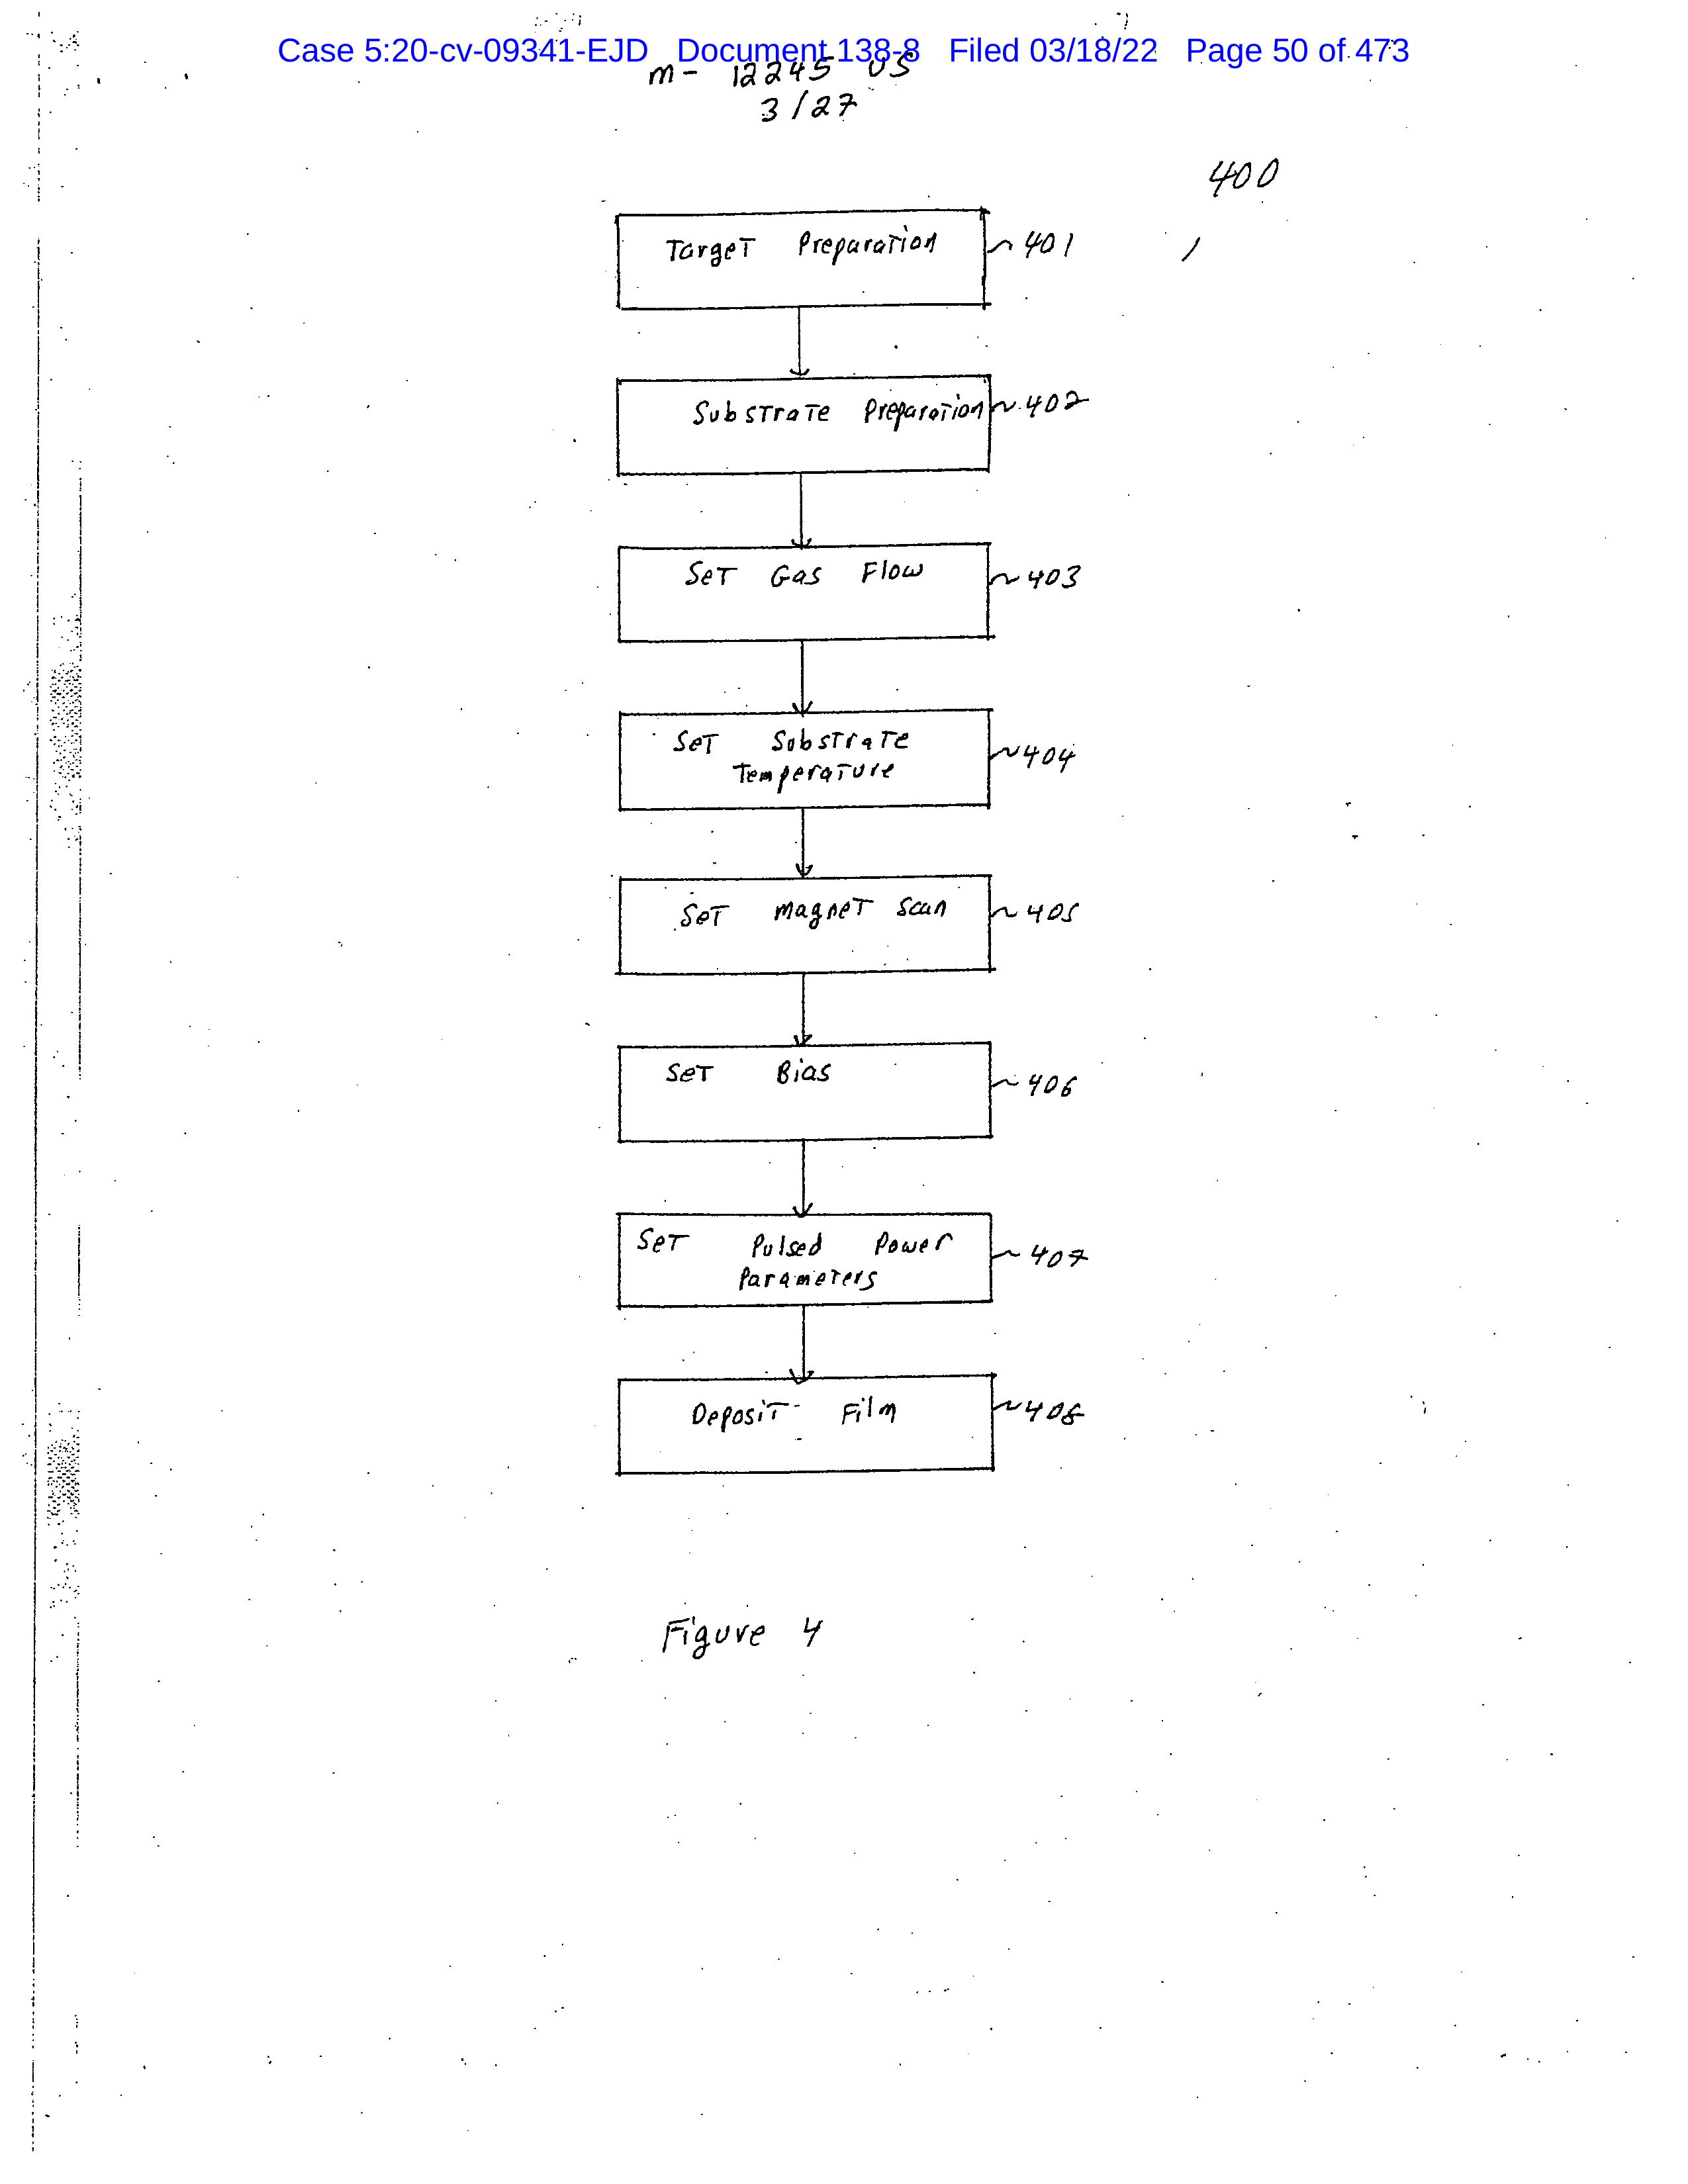 Case 5:20-cv-09341-EJD Document 138-8 Filed 03/18/22 Page 50 of 473
M- 12245 US
3/27
400
Target Preparation 401
Substrate Preparation 402
Set Gas Flow 403
Set Substrate 404
Temperature
Set Magnet Scan 405
Set Bias 406
Set Pulsed Power 407
Parameters
Deposit Film 408
Figure 4